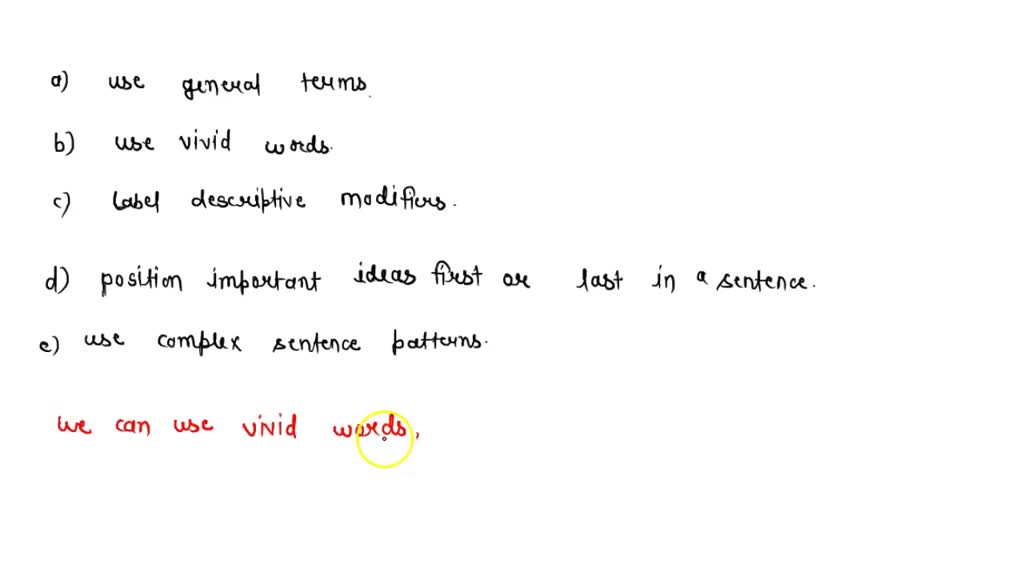 a) use general terms.
b) use vivid words.
c) Label descriptive modifiers.
d) position important ideas first or last in a sentence.
e) use complex sentence patterns.
we can use vivid words,